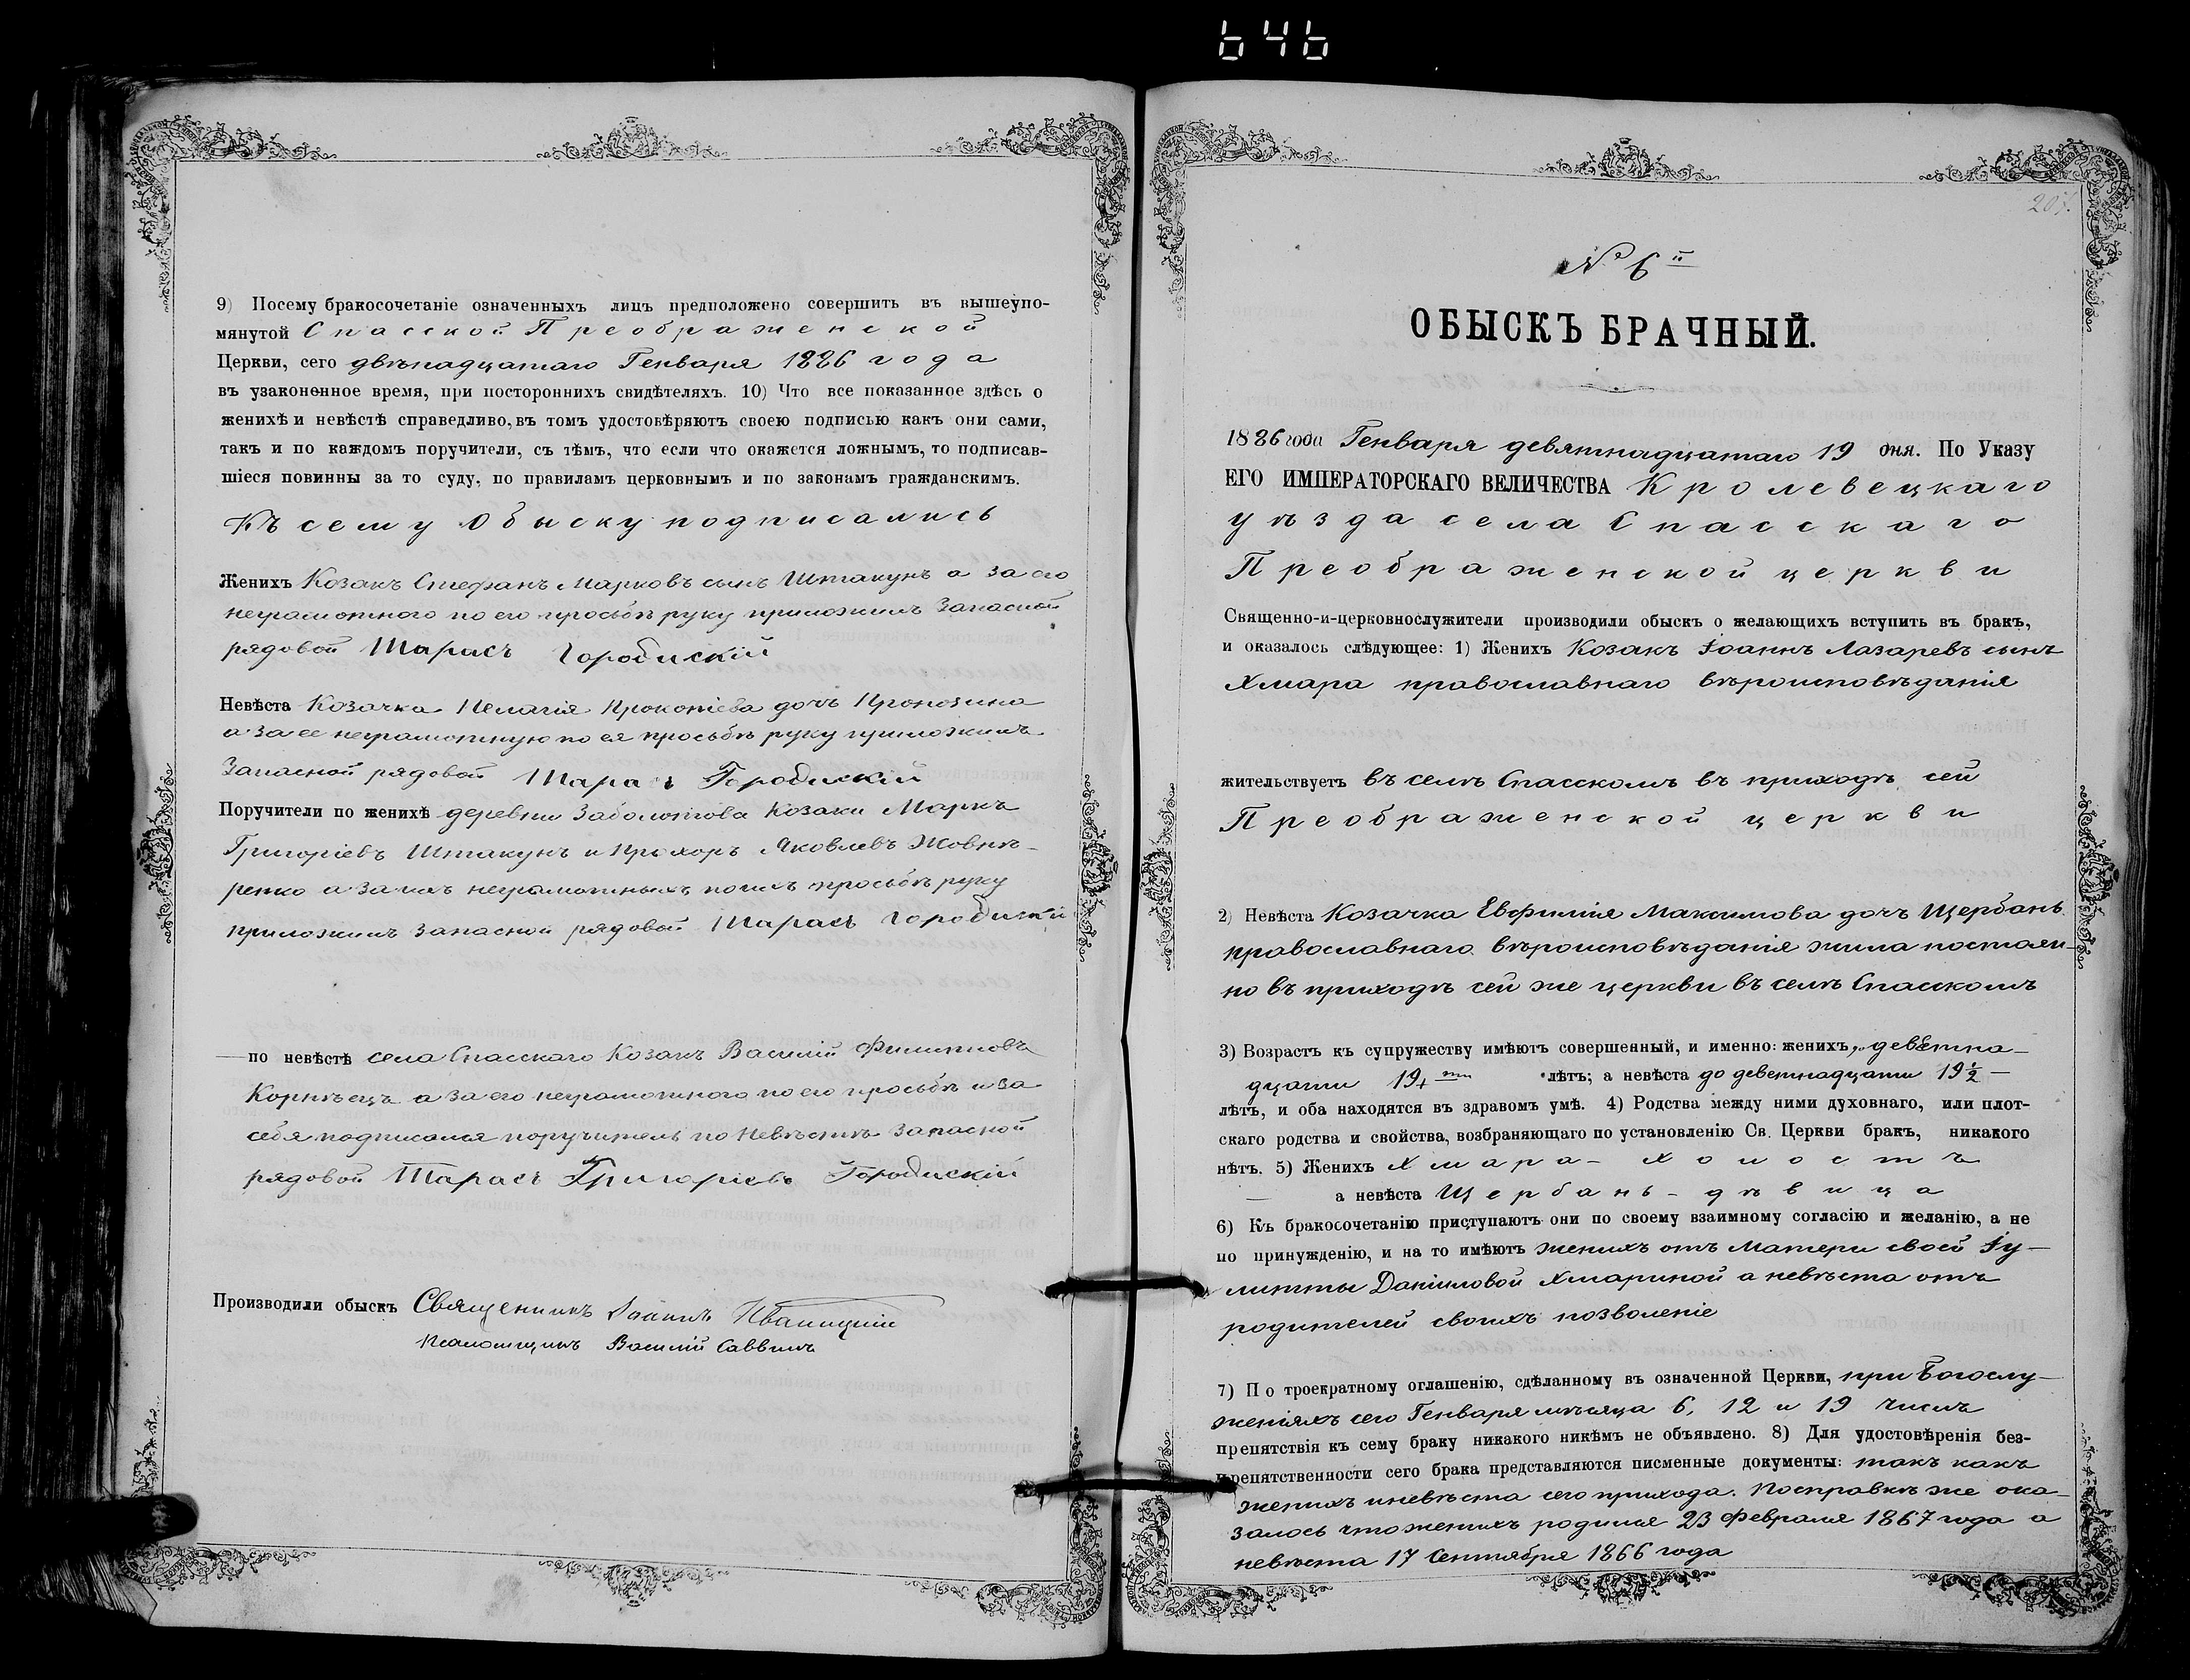 646
9) Посему бракосочетаніе означенныхъ лицъ предположено совершить въ вышеупо-
мянутой Спасской Преображенской
Церкви, сего двѣнадцатаго Генваря 1886 года
въ узаконенное время, при постороннихъ свидѣтеляхъ. 10) Что все показанное здѣсь о
женихѣ и невѣстѣ справедливо, въ томъ удостовѣряютъ своею подписью какъ они сами,
такъ и по каждомъ поручители, съ тѣмъ, что если что окажется ложнымъ, то подписав-
шіеся повинны за то суду, по правиламъ церковнымъ и по законамъ гражданскимъ.
Къ сему обыску подписались
Женихъ Козакъ Стефанъ Марковъ сынъ Штакунъ а за его
неграмотного по его просьбѣ руку приложилъ Запасной
рядовой Тарасъ Городискій
Невѣста Козачка Пелагія Прокопіева дочь
а за ее неграмотную по ея просьбѣ руку приложилъ
Запасной рядовой Тарасъ Городискій
Поручители по женихѣ деревни Заболотова Козаки Маркъ
Григоріевъ Штакунъ и Прохоръ Яковлевъ Жовнѣ-
ренко а за ихъ неграмотныхъ по ихъ просьбѣ руку
приложилъ Запасной рядовой Тарасъ Городискій
— по невѣстѣ села Спасского Козакъ Василій Филипповъ
Корнѣецъ а за его неграмотного по его просьбѣ и за
себя подписался поручитель по Невѣстѣ Запасной
рядовой Тарасъ Григоріевъ Городискій
Производили обыскъ Священникъ Іоаннъ Иваницкій
Псаломщикъ Василій Саввинъ
207.
№ 6й
ОБЫСКЪ БРАЧНЫЙ.
1886 года Генваря девятнадцатаго 19 дня. По Указу
ЕГО ИМПЕРАТОРСКАГО ВЕЛИЧЕСТВА Кролевецкаго
уѣзда села Спасскаго
Преображенской церкви
Священно-и-церковнослужители производили обыскъ о желающихъ вступить въ бракъ,
и оказалось слѣдующее: 1) Женихъ Козакъ Іоаннъ Лазаревъ сынъ
Хмара православнаго вѣроисповѣданія
жительствуетъ въ селѣ Спасскомъ въ приходѣ сей
Преображенской церкви
2) Невѣста Козачка Евфимія Максимова дочь Щербань
православнаго вѣроисповѣданія жила постоян-
но въ приходѣ сей же церкви въ селѣ Спасскомъ
3) Возрастъ къ супружеству имѣютъ совершенный, и именно: женихъ, деветна-
дцати 19 ти лѣтъ; а невѣста до деветнадцати 19½ —
лѣтъ, и оба находятся въ здравомъ умѣ. 4) Родства между ними духовнаго, или плот-
скаго родства и свойства, возбраняющаго по установленію Св. Церкви бракъ, никакого
нѣтъ. 5) Женихъ Хмара - холостъ
— а невѣста Щербань - дѣвица
6) Къ бракосочетанію приступаютъ они по своему взаимному согласію и желанію, а не
по принужденію, и на то имѣютъ женихъ отъ Матери своей Іу-
литты Даніиловой Хмариной а невѣста отъ
родителей своихъ позволеніе
7) По троекратному оглашенію, сдѣланному въ означенной Церкви, при Богослу-
женіяхъ сего Генваря мѣсяца 6, 12 и 19 числъ
препятствія къ сему браку никакого никѣмъ не объявлено. 8) Для удостовѣренія без-
препятственности сего брака представляются писменные документы: такъ какъ
женихъ и невѣста сего прихода. По справкѣ же ока-
залось что женихъ родился 23 Февраля 1867 года а
невѣста 17 Сентября 1866 года